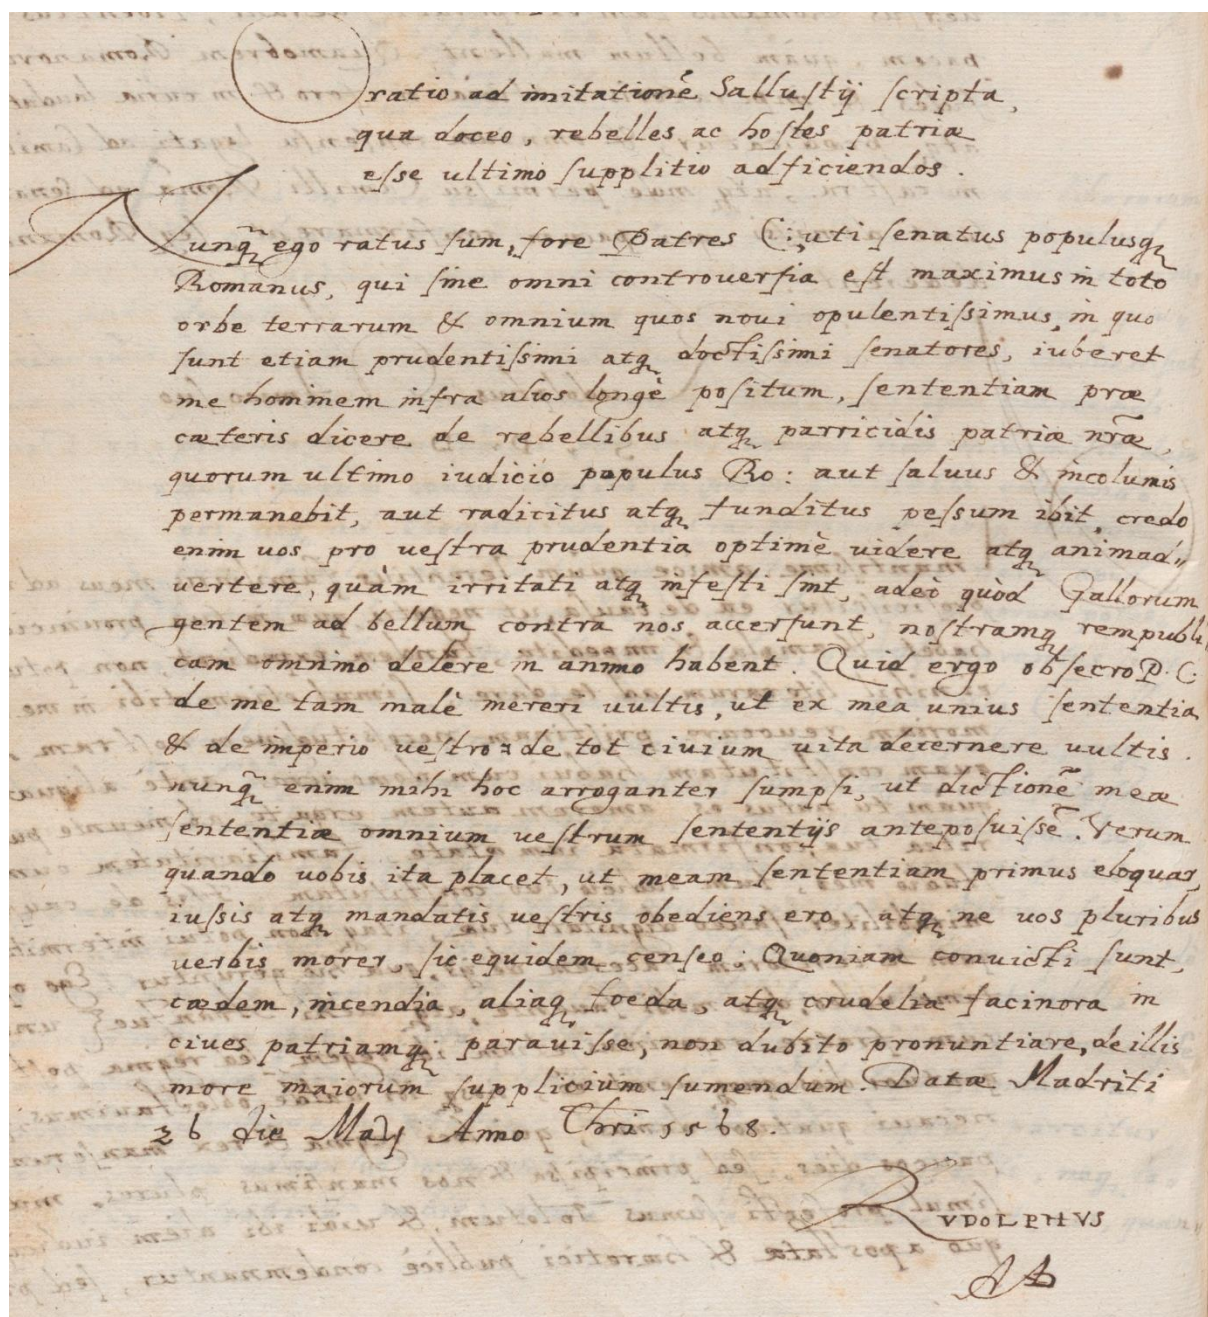 Oratio ad imitationē Sallustij scripta,
qua doceo, rebelles ac hostes patriæ
esse ultimo supplitio adficiendos.
Nunq̃ ego ratus sum, fore Patres C: uti senatus populusq;
Romanus, qui sine omni controuersia est maximus in toto
orbe terrarum & omnium quos noui opulentissimus, in quo
sunt etiam prudentissimi atq; doctissimi senatores, iuberet
me hominem infra alios longè positum, sententiam præ
cæteris dicere de rebellibus atq; parricidis patriæ nr̃æ,
quorum ultimo iudicio populus Ro: aut saluus & incolumis
permanebit, aut radicitus atq; funditus pessum ibit, credo
enim uos pro uestra prudentia optimè uidere atq; animad„
uertere, quàm irritati atq; infesti sint, adeò quòd Gallorum
gentem ad bellum contra nos accersunt, nostramq; rempubli
cam omnino delere in animo habent. Quid ergo obsecro P. C:
de me tam malè mereri uultis, ut ex mea unius sententia
& de imperio uestro & de tot ciuium uita decernere uultis.
nunq̃ enim mihi hoc arroganter sumpsi, ut dictionē meæ
sententiæ omnium uestrum sententijs anteposuissē. Verum
quando uobis ita placet, ut meam sententiam primus eloquar,
iussis atq; mandatis uestris obediens ero, atq; ne uos pluribus
uerbis morer, sic equidem censeo: Quoniam convicti sunt,
cædem, incendia, aliaq; foeda, atq; crudelia facinora in
ciues patriamq; parauisse, non dubito pronuntiare, de illis
more maiorum supplicium sumendum. Datæ Madriti
26 die Maij Anno Chri 1568.
RVDOLPHVS